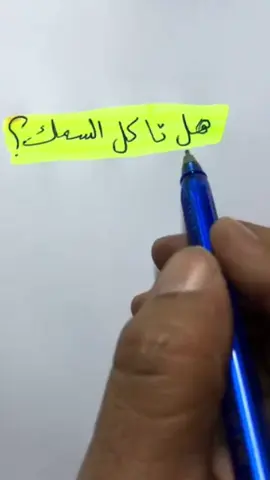 هل تاكل السمك؟